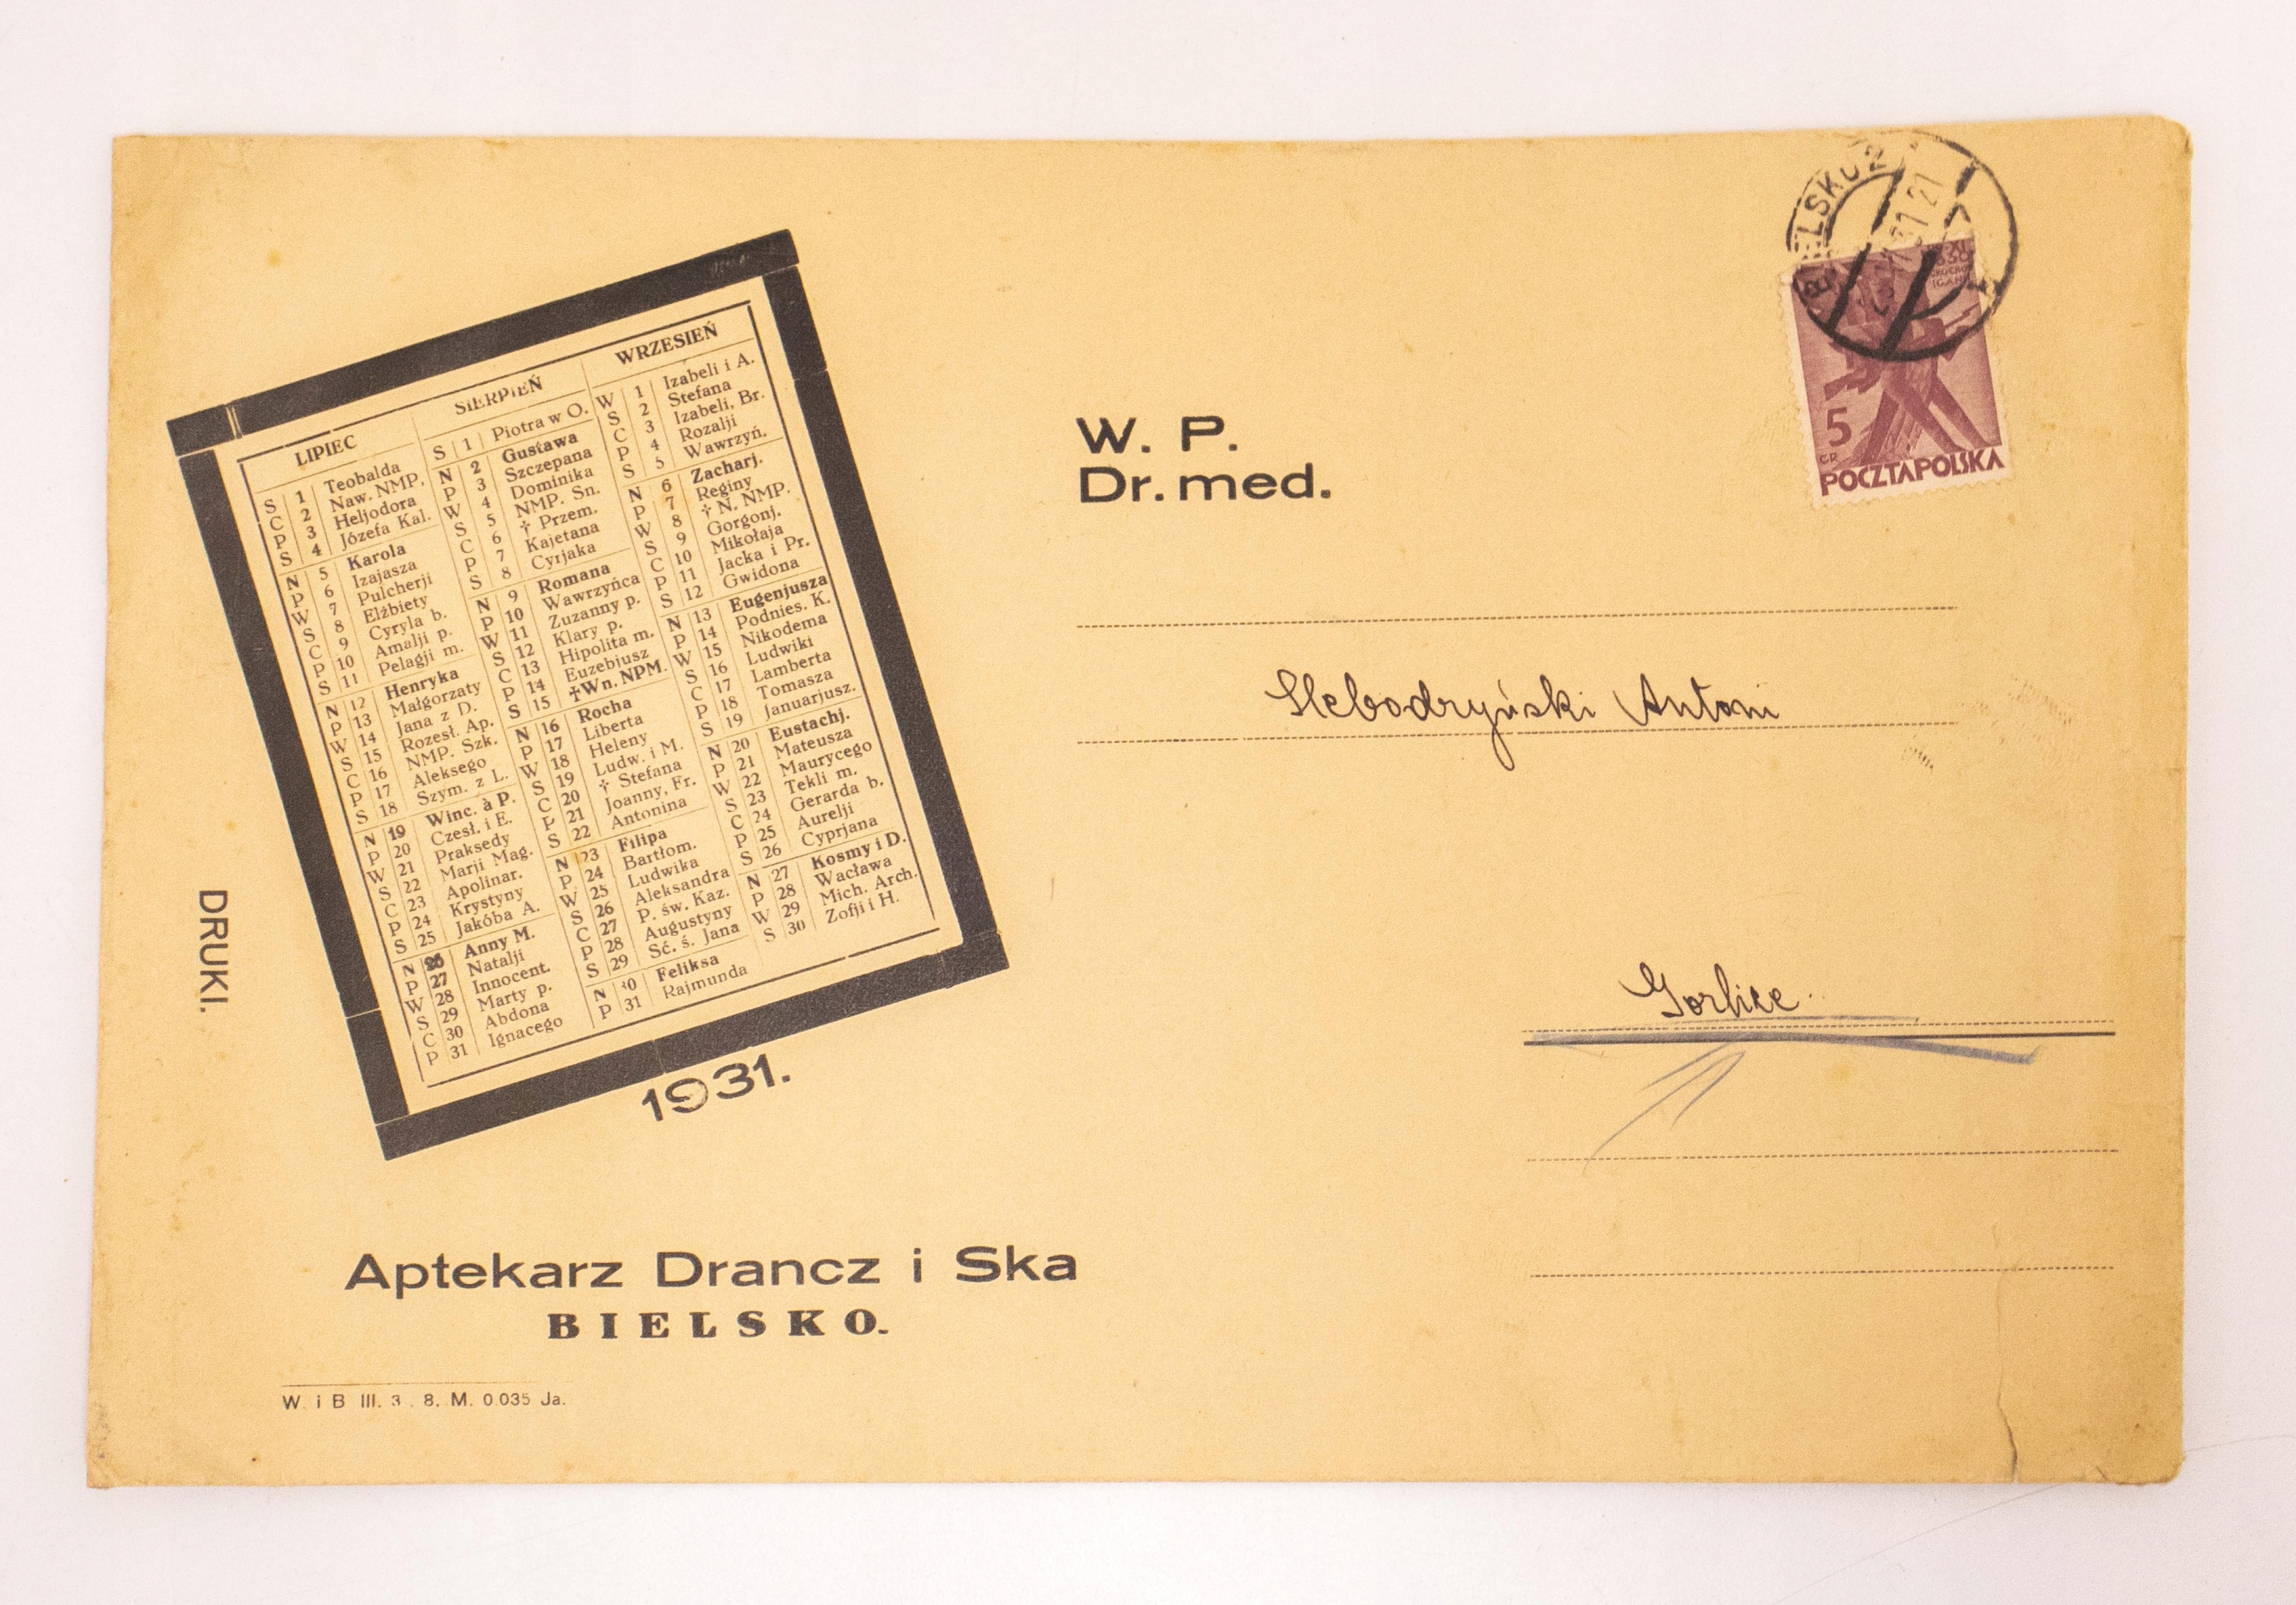 LIPIEC
S 1 Teobalda
C 2 Naw. NMP.
P 3 Heljodora
S 4 Józefa Kal.
N 5 Karola
P 6 Izajasza
W 7 Pulcherji
S 8 Elżbiety
C 9 Cyryla b.
P 10 Amalji p.
S 11 Pelagji m.
N 12 Henryka
P 13 Małgorzaty
W 14 Jana z D.
S 15 Rozesł. Ap.
C 16 NMP. Szk.
P 17 Aleksego
S 18 Szym. z L.
N 19 Winc. à P.
P 20 Czesł. i E.
W 21 Praksedy
S 22 Marji Mag.
C 23 Apolinar.
P 24 Krystyny
S 25 Jakóba A.
N 26 Anny M.
P 27 Natalji
W 28 Innocent.
S 29 Marty p.
C 30 Abdona
P 31 Ignacego
SIERPIEŃ
S 1 Piotra w O.
N 2 Gustawa
P 3 Szczepana
W 4 Dominika
S 5 NMP. Sn.
C 6 † Przem.
P 7 Kajetana
S 8 Cyrjaka
N 9 Romana
P 10 Wawrzyńca
W 11 Zuzanny p.
S 12 Klary p.
C 13 Hipolita m.
P 14 Euzebjusz
S 15 †Wn. NPM.
N 16 Rocha
P 17 Liberta
W 18 Heleny
S 19 Ludw. i M.
C 20 † Stefana
P 21 Joanny, Fr.
S 22 Antonina
N 23 Filipa
P 24 Bartłom.
W 25 Ludwika
S 26 Aleksandra
C 27 P. św. Kaz.
P 28 Augustyny
S 29 Sć. ś. Jana
N 30 Feliksa
P 31 Rajmunda
WRZESIEŃ
W 1 Izabeli i A.
S 2 Stefana
C 3 Izabeli, Br.
P 4 Rozalji
S 5 Wawrzyń.
N 6 Zacharj.
P 7 Reginy
W 8 † N. NMP.
S 9 Gorgonj.
C 10 Mikołaja
P 11 Jacka i Pr.
S 12 Gwidona
N 13 Eugenjusza
P 14 Podnies. K.
W 15 Nikodema
S 16 Ludwiki
C 17 Lamberta
P 18 Tomasza
S 19 Januarjusz.
N 20 Eustachj.
P 21 Mateusza
W 22 Maurycego
S 23 Tekli m.
C 24 Gerarda b.
P 25 Aurelji
S 26 Cyprjana
N 27 Kosmy i D.
P 28 Wacława
W 29 Mich. Arch.
S 30 Zofji i H.
1931.
DRUKI.
Aptekarz Drancz i Ska
BIELSKO.
W. i B III. 3 . 8. M. 0.035 Ja.
BIELSKO 2
5
GR
POCZTA POLSKA
W. P.
Dr. med.
Slebodzyński Antoni
Gorlice